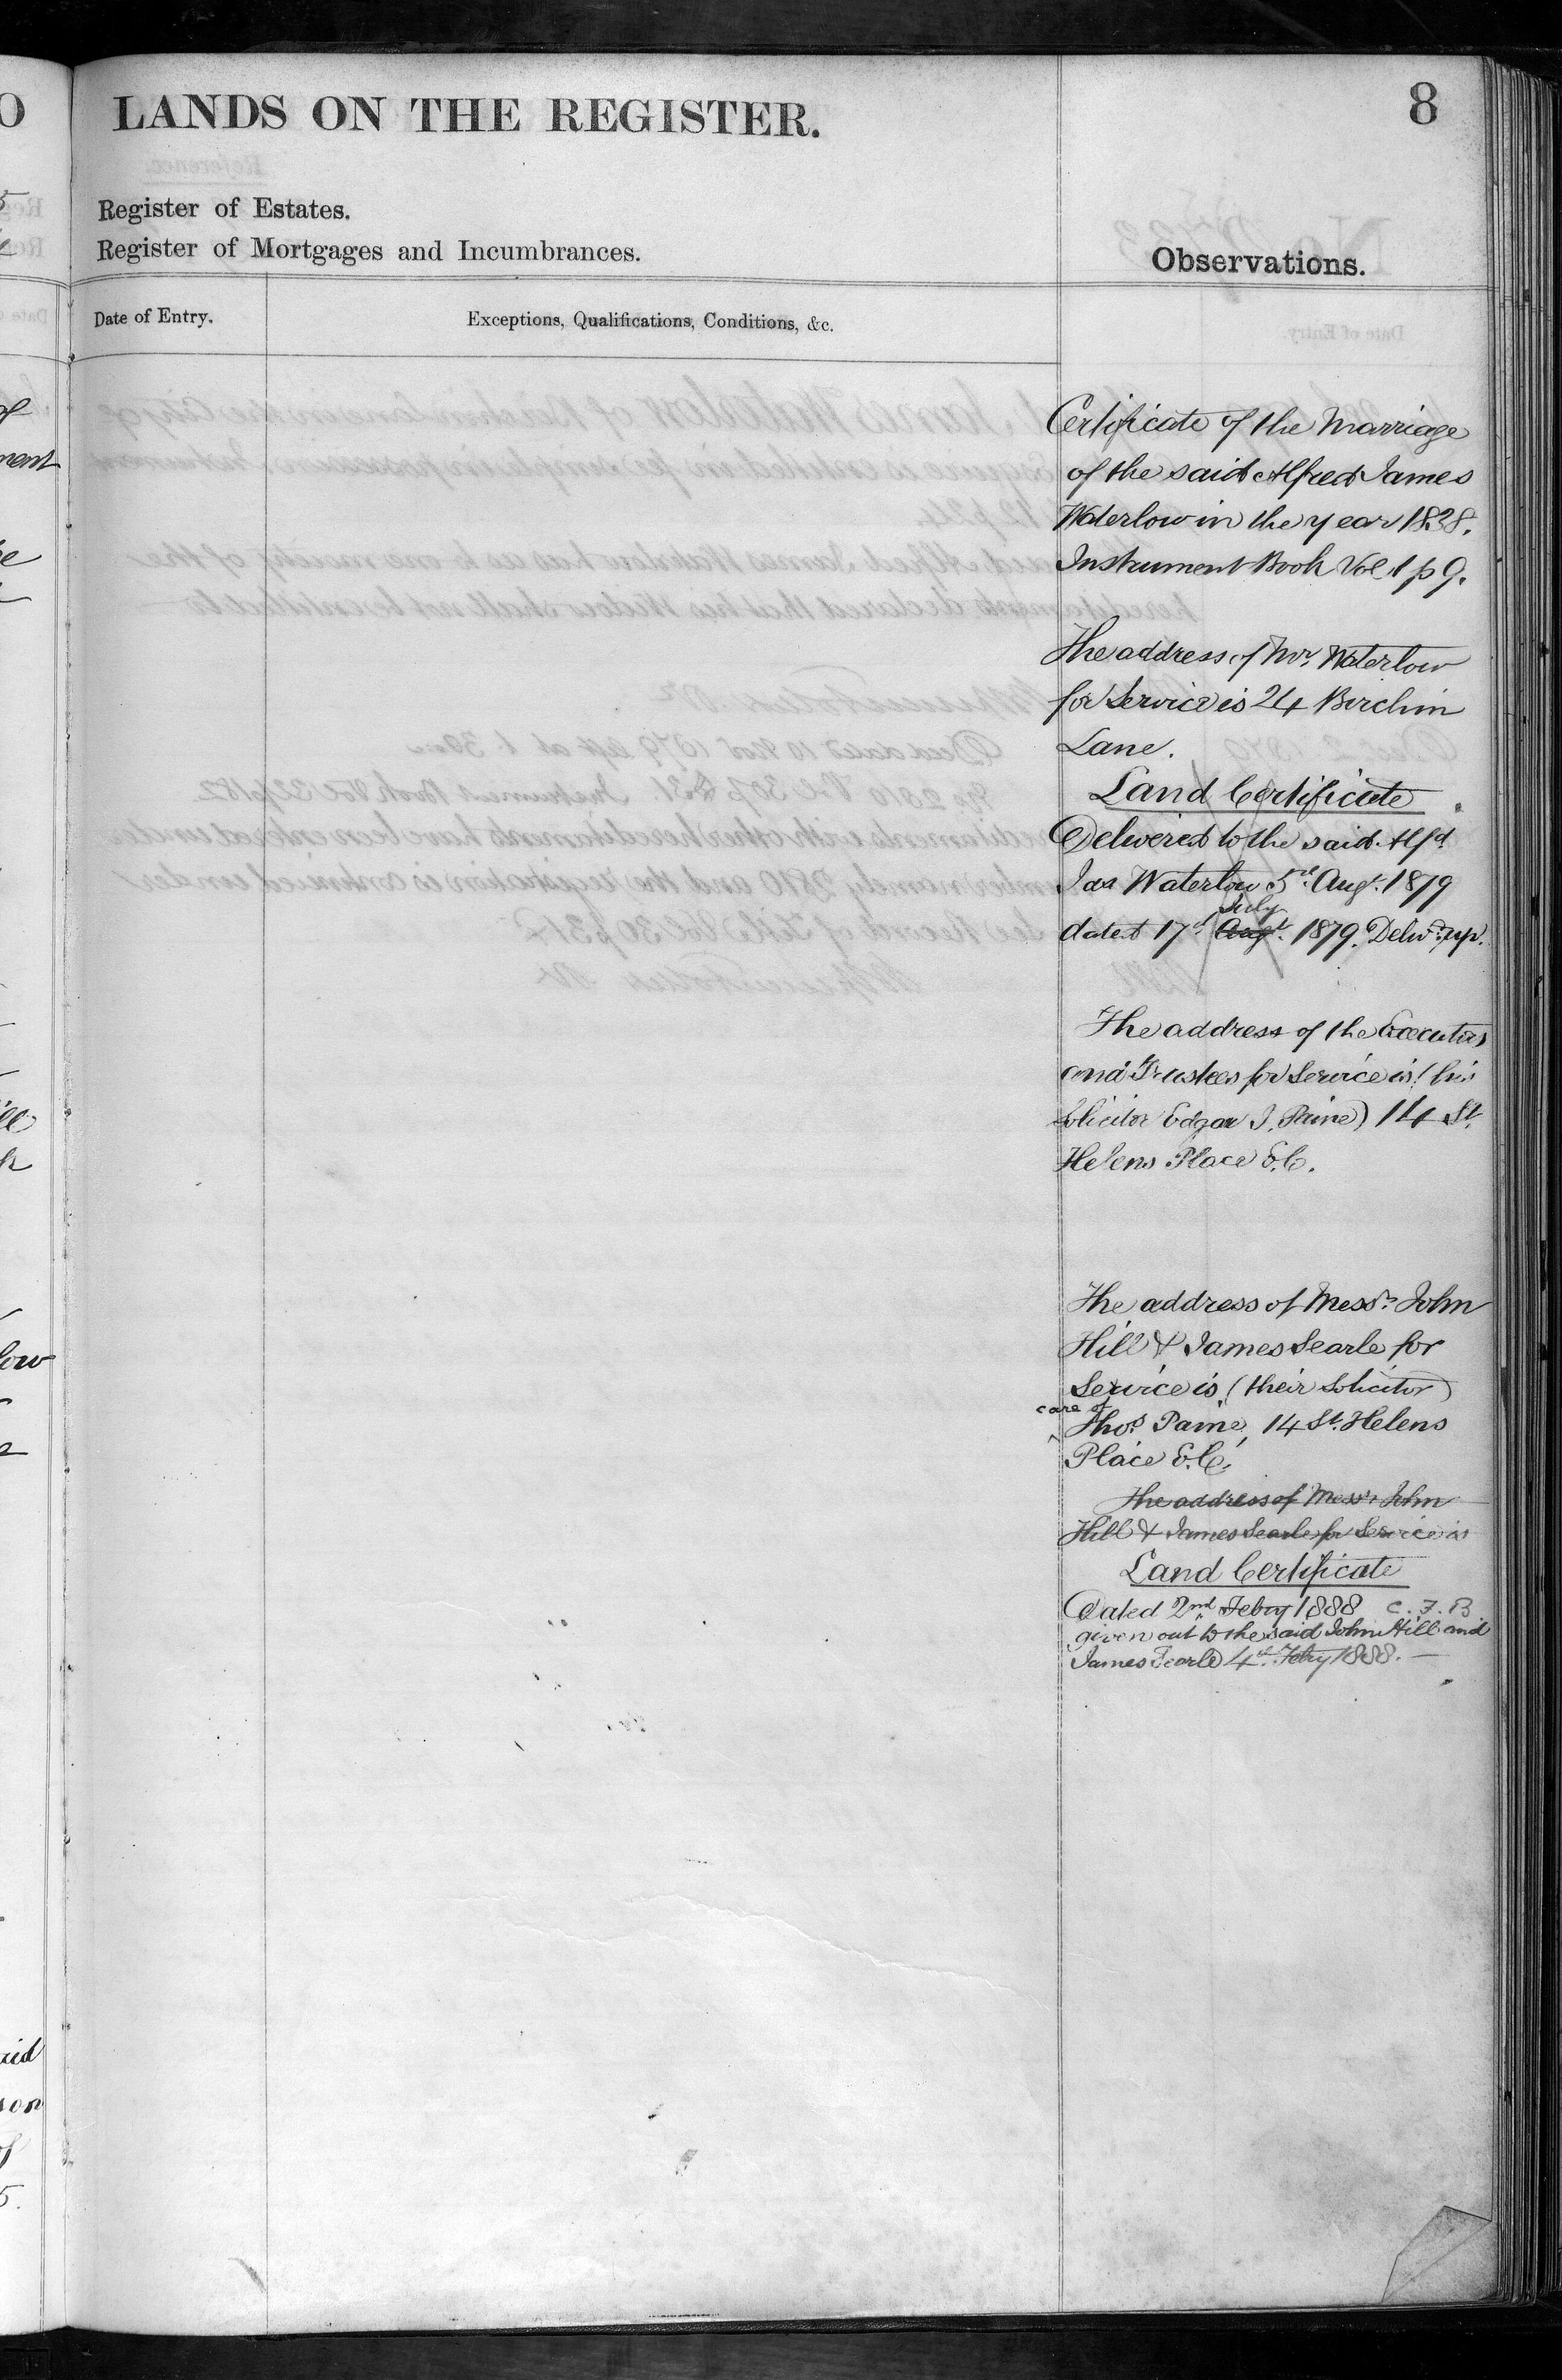 LANDS ON THE REGISTER.
8
Register of Estates.
Register of Mortgages and Incumbrances.
Observations.
Date of Entry.
Exceptions, Qualifications, Conditions, &c.
Certificate of the Marriage
of the said Alfred James
Waterlow in the year 1838.
Instrument Book Vol. 1 p 9.
The address of Mr. Waterlow
for Service is 24 Birchin
Lane.
Land Certificate
Delivered to the said Alfd
Jas Waterlow 5th Augt. 1879
July
dated 17th Augt. 1879. Delivd. up.
The address of the Executors
and Trustees for Service is (his
solicitor Edgar J. Paine) 14 St.
Helens Place E.C.
The address of Messrs John
Hill & James Searle for
Service is (their solicitor)
care of
Thos. Paine, 14 St. Helens
Place E.C.
The address of Messrs John
Hill & James Searle for Service is
Land Certificate
Dated 2nd Febry 1888 C. F. B
given out to the said John Hill and
James Searle 4th Febry 1888.